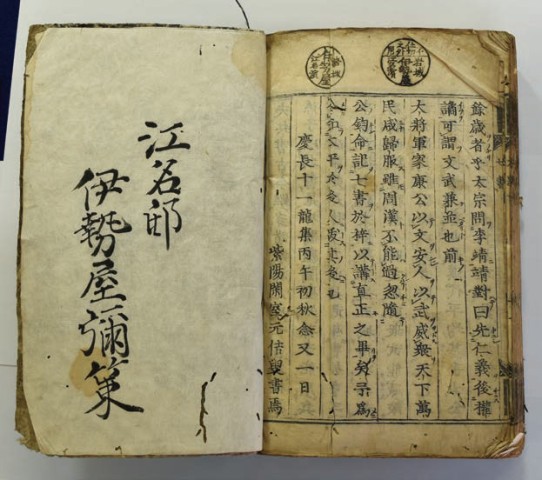 餘歲者乎太宗問李靖靖對曰先仁義後權
譎可謂文武兼並也前
大將軍家康公以文安人以武威衆天下萬
民咸歸服雖周漢不能過
公鈞命七書於梓以正之畢矣
太平
慶長十一龍集丙午初秋念又一日
紫陽閑室元佶叟書焉
江名邨
伊勢屋彌策